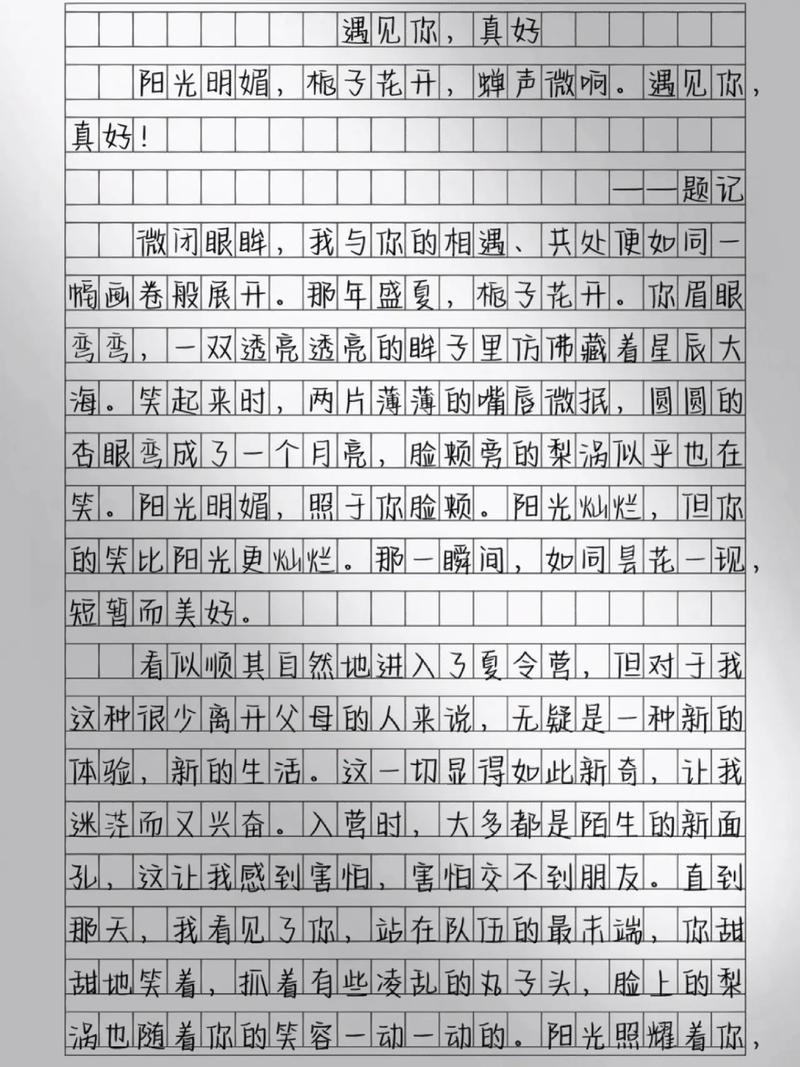 遇见你，真好
阳光明媚，栀子花开，蝉声微响。遇见你，
真好！
——题记
微闭眼眸，我与你的相遇、共处便如同一
幅画卷般展开。那年盛夏，栀子花开。你眉眼
弯弯，一双透亮透亮的眸子里仿佛藏着星辰大
海。笑起来时，两片薄薄的嘴唇微抿，圆圆的
杏眼弯成了一个月亮，脸颊旁的梨涡似乎也在
笑。阳光明媚，照于你脸颊。阳光灿烂，但你
的笑比阳光更灿烂。那一瞬间，如同昙花一现，
短暂而美好。
看似顺其自然地进入了夏令营，但对于我
这种很少离开父母的人来说，无疑是一种新的
体验，新的生活。这一切显得如此新奇，让我
迷茫而又兴奋。入营时，大多都是陌生的新面
孔，这让我感到害怕，害怕交不到朋友。直到
那天，我看见了你，站在队伍的最末端，你甜
甜地笑着，抓着有些凌乱的丸子头，脸上的梨
涡也随着你的笑容一动一动的。阳光照耀着你，